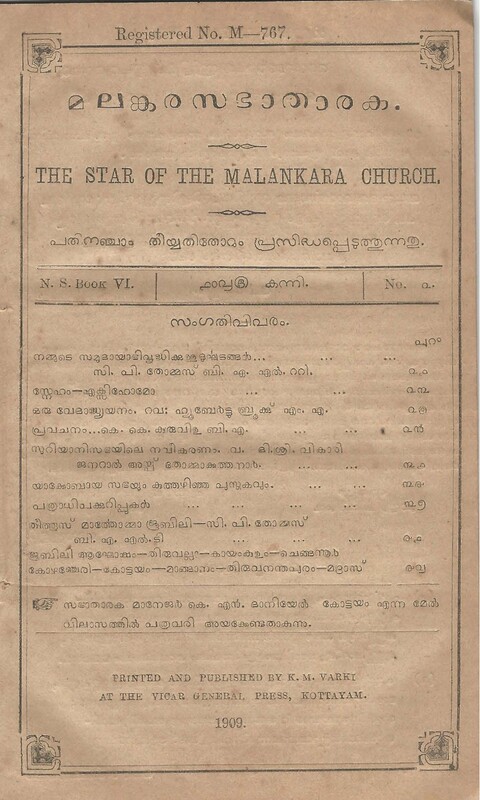 Registered No. M—767.
മലങ്കരസഭാതാരക.
THE STAR OF THE MALANKARA CHURCH.
പതിനഞ്ചാം തീയ്യതിതോറും പ്രസിദ്ധപ്പെടുത്തുന്നതു.
N. S. BOOK VI. കന്നി. No. ൨.
സംഗതിവിവരം.
പുറം
നമ്മുടെ ... ...
സി. പി. തോമ്മസ് ബി. ഏ. എൽ. റ്റി.
സ്നേഹം—എക്സിഹോമോ ... ...
ഒരു വേദാദ്ധ്യയനം. റവ: ഹ്യുബേർട്ടു ബ്രൂക്ക് എം. എ.
പ്രവചനം...കെ. കെ. കുരുവിള ബി. എ. ... ...
സുറിയാനിസഭയിലെ നവീകരണം. വ. ദി. ശ്രി. വികാരി
ജനറാൽ തോമ്മാകത്തനാർ. ...
യാക്കോബായ സഭയും കുത്തഴിഞ്ഞ പുസ്തകവും. ... ...
പത്രാധിപക്കുറിപ്പുകൾ ... ... ...
തീത്തുസ് മാർത്തോമ്മാ ജൂബിലി—സി. പി. തോമ്മസ്
ബി. എ. എൽ. ടി ... ...
ജൂബിലി ആഘോഷം—തിരുവല്ലാ—കായംകുളം—ചെങ്ങന്നൂർ
കോഴഞ്ചേരി—കോട്ടയം—മാങ്ങാനം—തിരുവനന്തപുരം—മദ്രാസ്
സഭാതാരക മാനേജർ കെ. എൻ. ദാനിയേൽ കോട്ടയം എന്ന മേൽ
വിലാസത്തിൽ പത്രവരി അയക്കേണ്ടതാകുന്നു.
PRINTED AND PUBLISHED BY K. M. VARKI
AT THE VICAR GENERAL PRESS, KOTTAYAM.
1909.